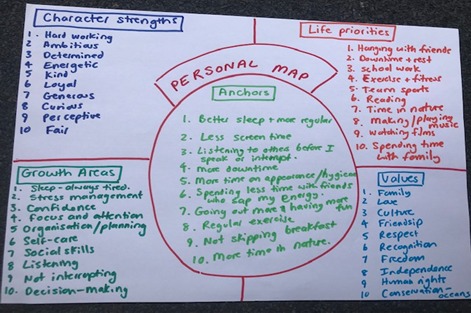 Character strengths
1. Hard working
2 Ambitious
3 Determined
4 Energetic
5 Kind
6 Loyal
7 Generous
8 Curious
9 Perceptive
10 Fair
PERSONAL MAP
Life priorities
1. Hanging with friends
2. Downtime + rest
3. school work
4. Exercise + fitness
5. Team sports
6. Reading
7. Time in nature
8. Making/playing
music
9. Watching films
10. Spending time
with family
Anchors
1. Better sleep + more regular
2. Less screen time
3. Listening to others before I
speak or interrupt.
4. more downtime
5. More time on appearance/hygiene
6. Spending less time with friends
who sap my energy.
7. Going out more & having more
fun
8. Regular exercise
9. Not skipping breakfast
10. More time in nature.
Growth Areas
1. Sleep - always tired.
2. Stress management
3. Confidence
4. Focus and attention
5. Organisation/planning
6 Self-care
7 Social skills
8 Listening
9 Not interrupting
10 Decision-making
Values
1. Family
2 Love
3 Culture
4 Friendship
5 Respect
6 Recognition
7 Freedom
8 Independence
9 Human rights
10 Conservation-
oceans